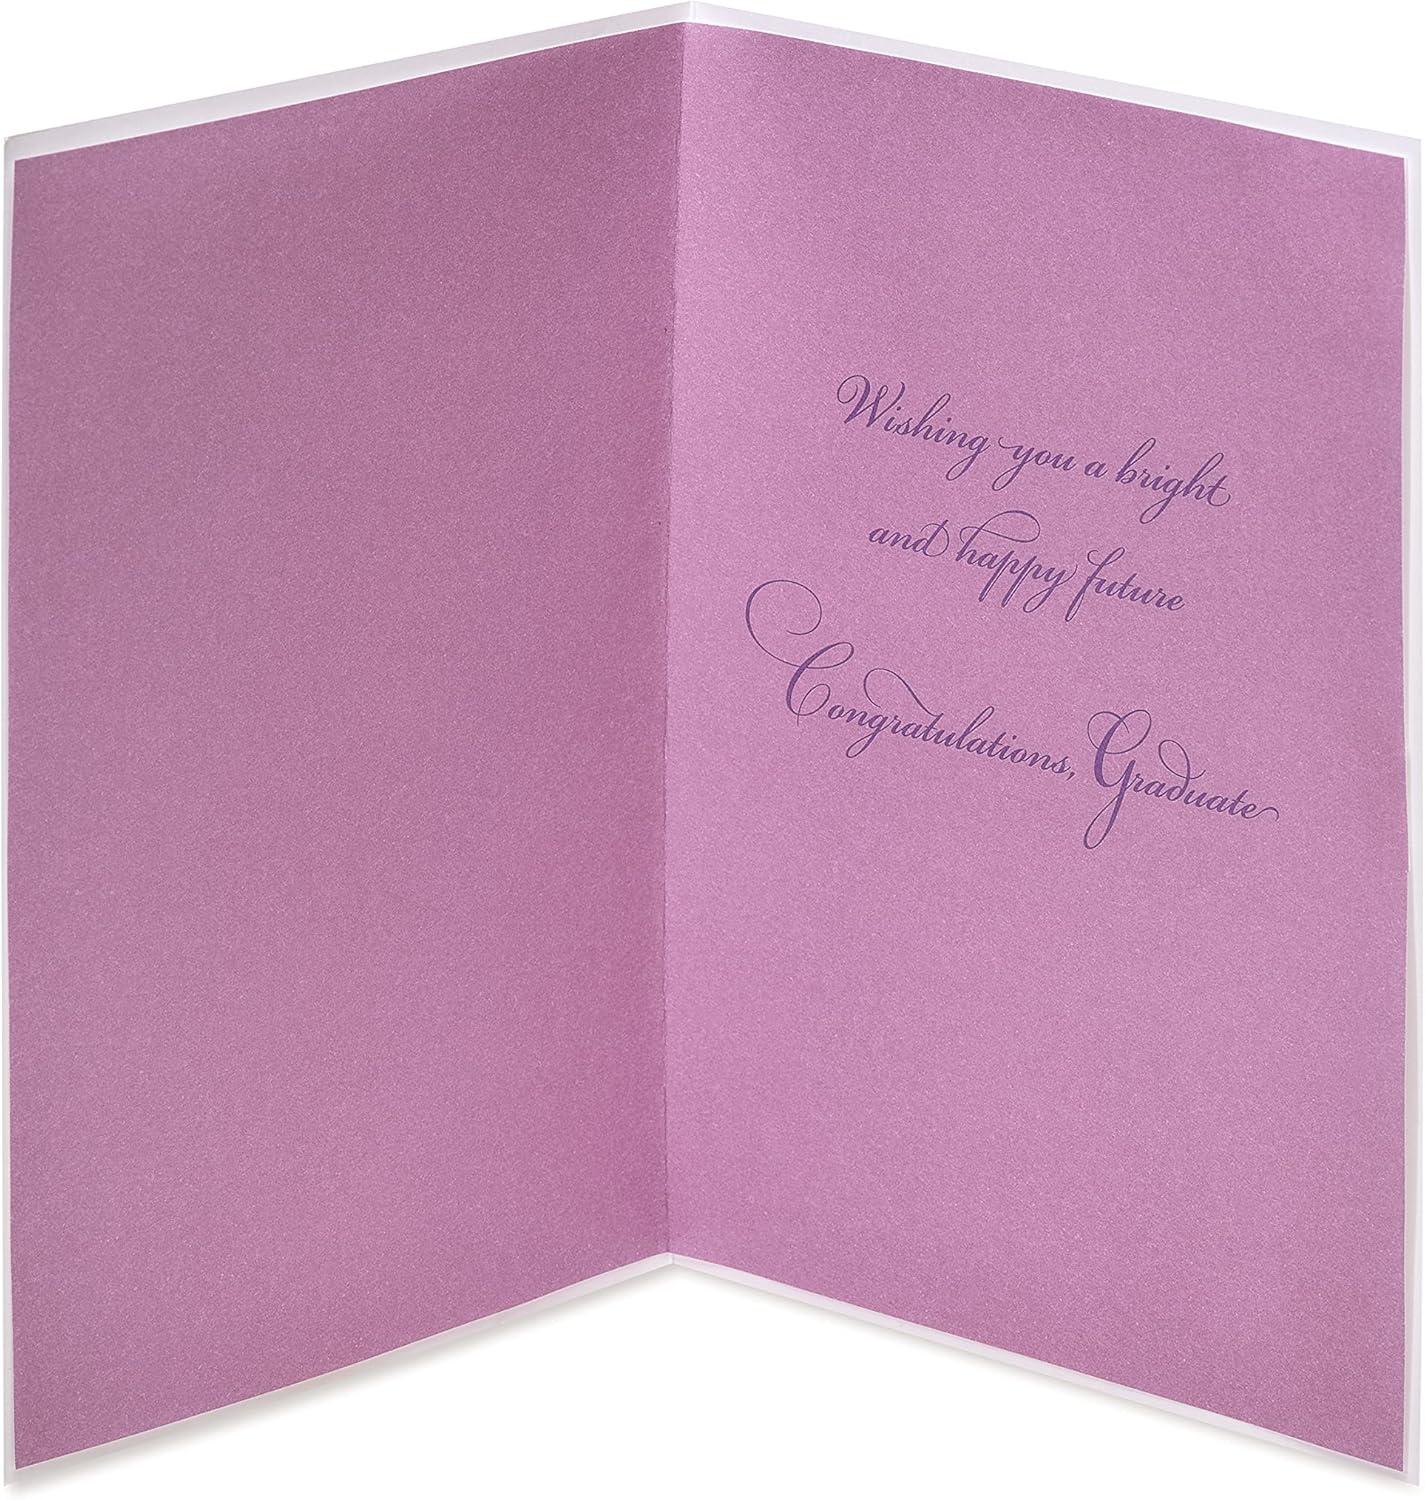 Wishing you a bright
and happy future
Congratulations, Graduate